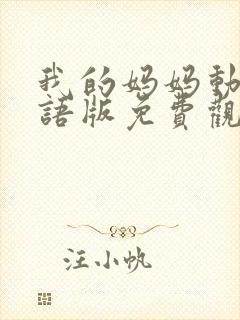 我的妈妈動
語版免費觀
汪小帆